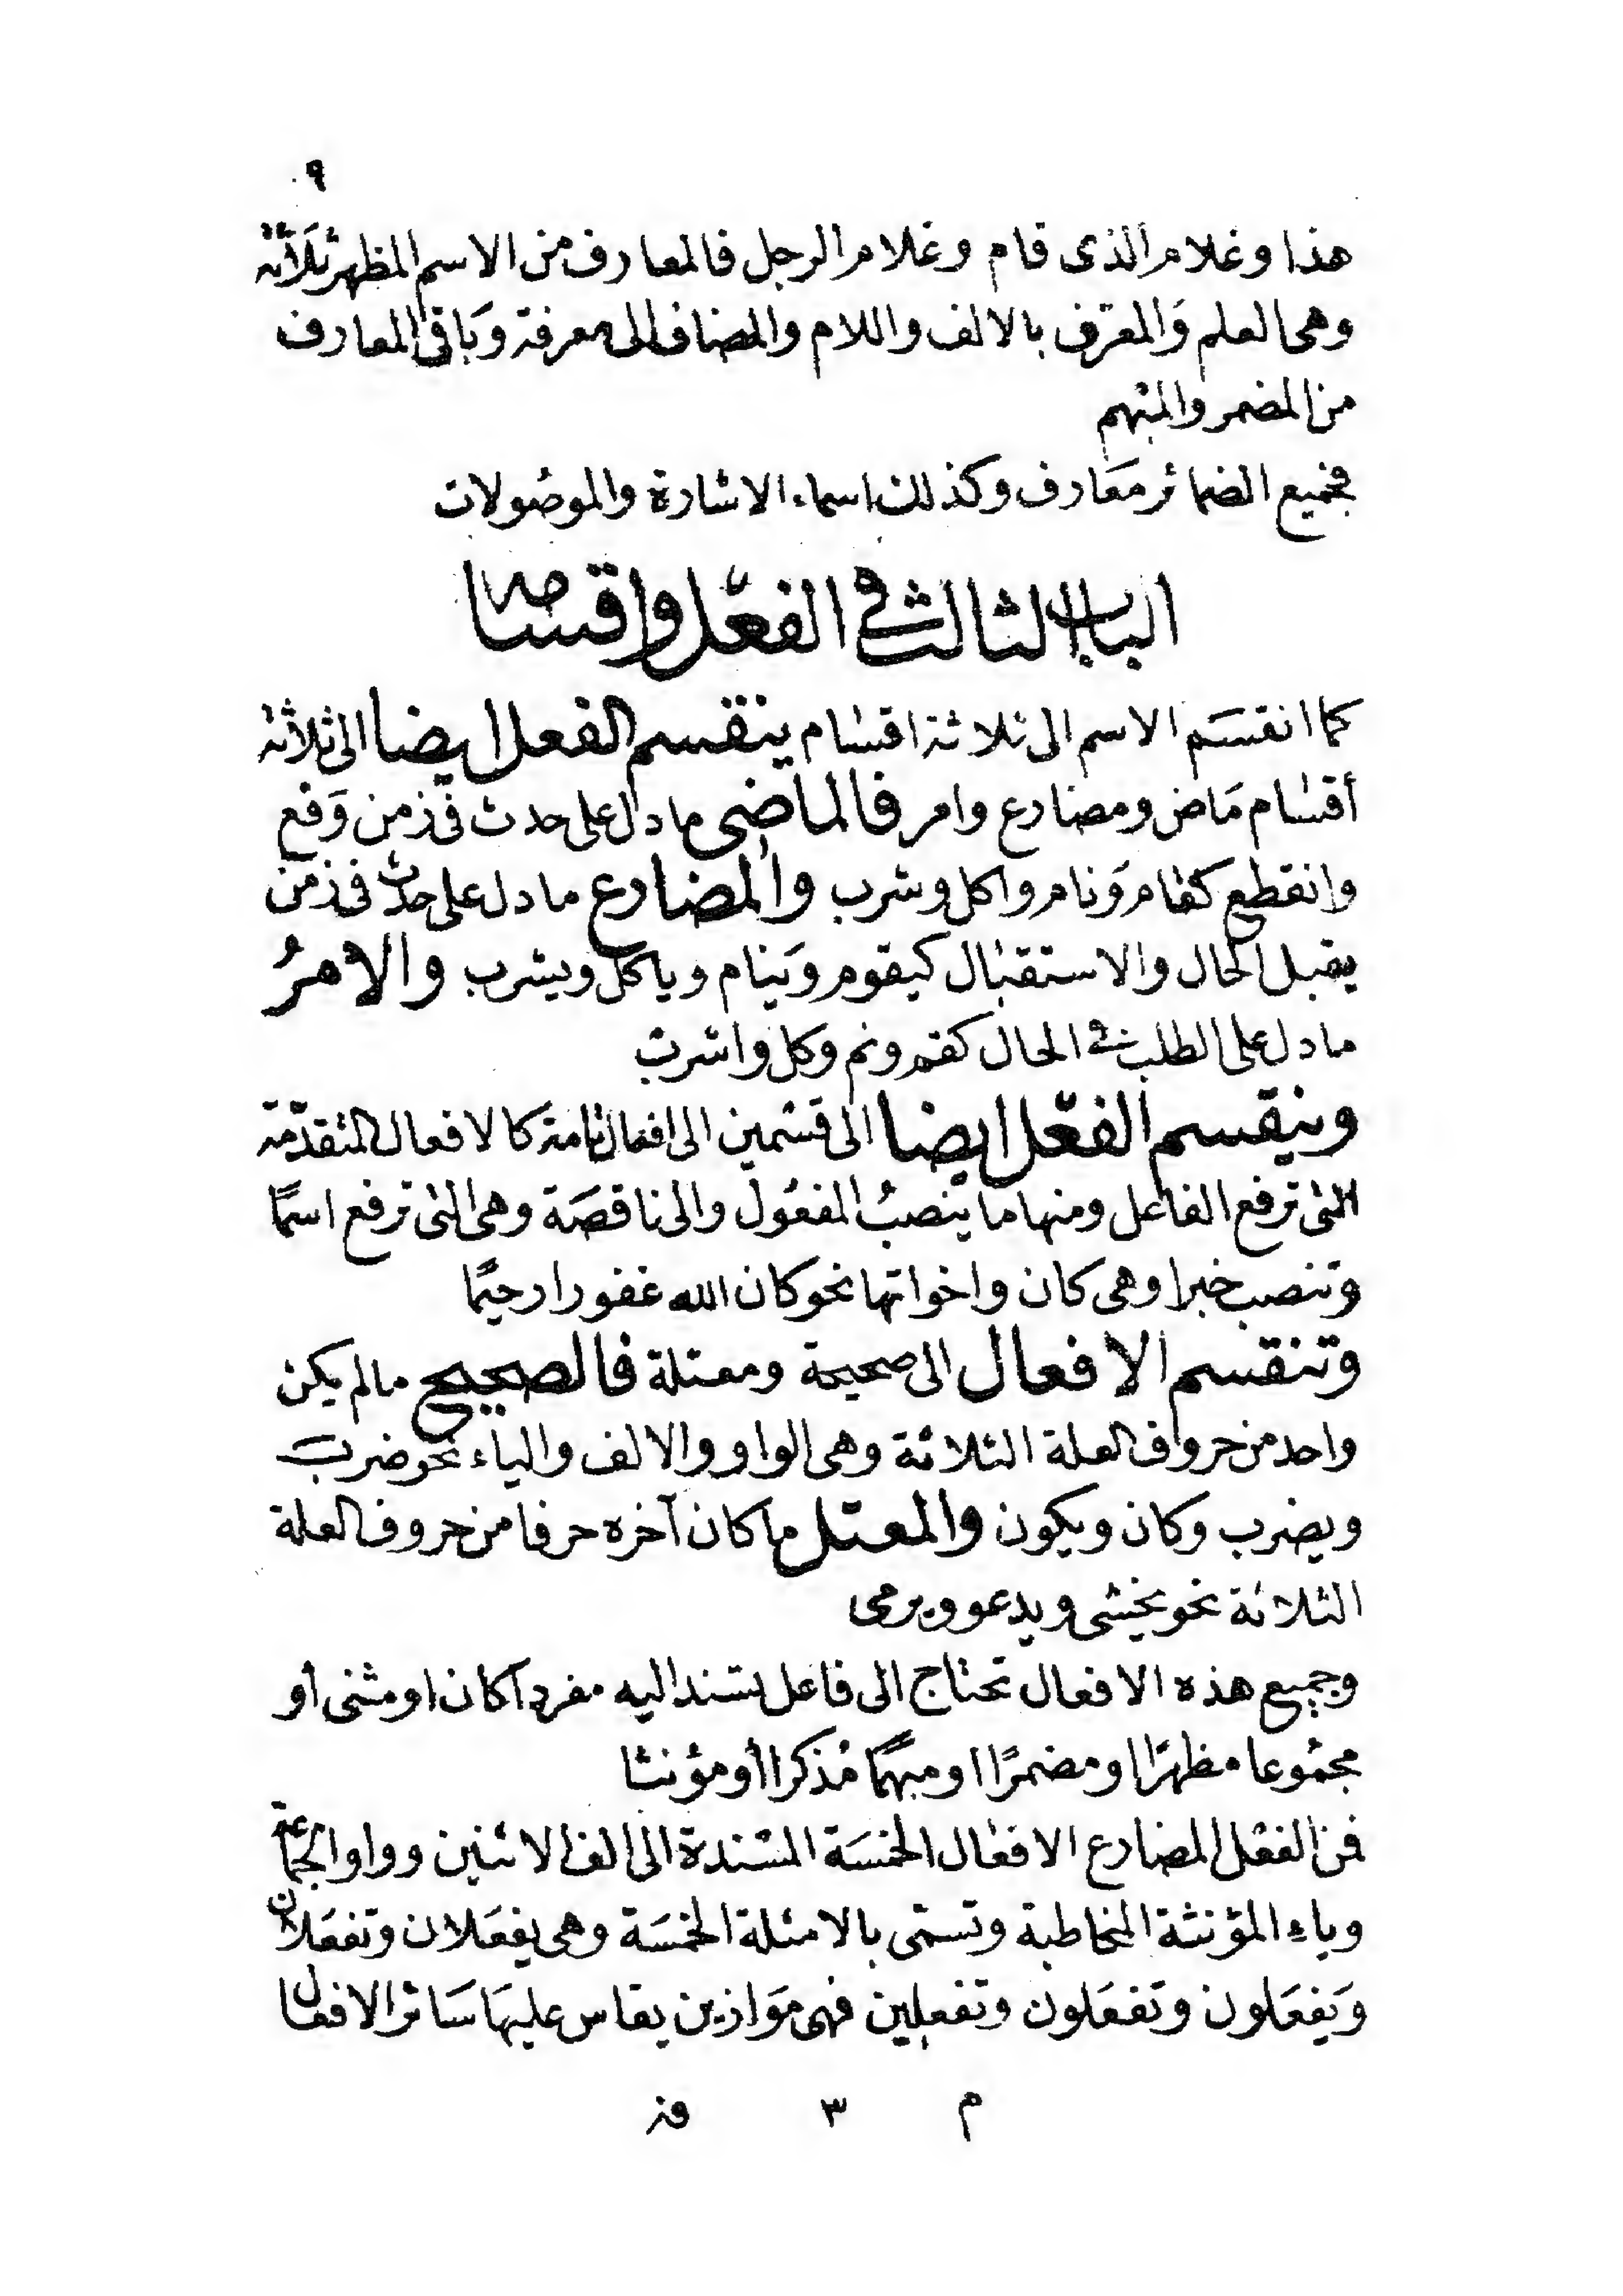 ٩
هذا وغلام الذى قام وغلام الرجل فالمعارف من الاسم المظهر ثلاثة
وهى العلم والمعرّف بالالف واللام والمضاف الى معرفة وباقى المعارف
من المضمر والمبهم
فجميع الضمائر معارف وكذلك اسماء الاشارة والموصولات
الباب الثالث فى الفعل واقسامه
كما انقسم الاسم الى ثلاثة اقسام ينقسم الفعل ايضا الى ثلاثة
أقسام ماض ومضارع وامر فالماضى ما دل على حدث فى زمن وقع
وانقطع كقام ونام واكل وشرب والمضارع ما دل على حدث فى زمن
يقبل الحال والاستقبال كيقوم وينام وياكل ويشرب والامرُ
ما دل على الطلب فى الحال كقم ونم وكل واشرب
وينقسم الفعل ايضا الى قسمين الى افعال تامة كالافعال المتقدّمة
التى ترفع الفاعل ومنها ما ينصبُ المفعول والى ناقصة وهى التى ترفع اسمًا
وتنصب خبرا وهى كان واخواتها نحو كان الله غفورا رحيمًا
وتنقسم الافعال الى صحيحة ومعتلة فالصحيح ما لم يكن
واحد من حروف العلة الثلاثة وهى الواو والالف والياء نحو ضرب
ويضرب وكان ويكون والمعتل ما كان آخره حرفا من حروف العلة
الثلاثة نحو يخشى ويدعو ويرمى
وجميع هذه الافعال تحتاج الى فاعل تسند اليه مفردًا كان او مثنى أو
مجموعا مظهرًا او مضمرًا او مبهمًا مُذكرا أو مؤنثا
فمن الفعل المضارع الافعال الخمسة المسندة الى الف الاثنين وواو الجماعة
وياء المؤنثة المخاطبة وتسمى بالامثلة الخمسة وهى يفعلان وتفعلان
ويفعلون وتفعلون وتفعلين فهى موازين يقاس عليها سائر الافعال
م ٣